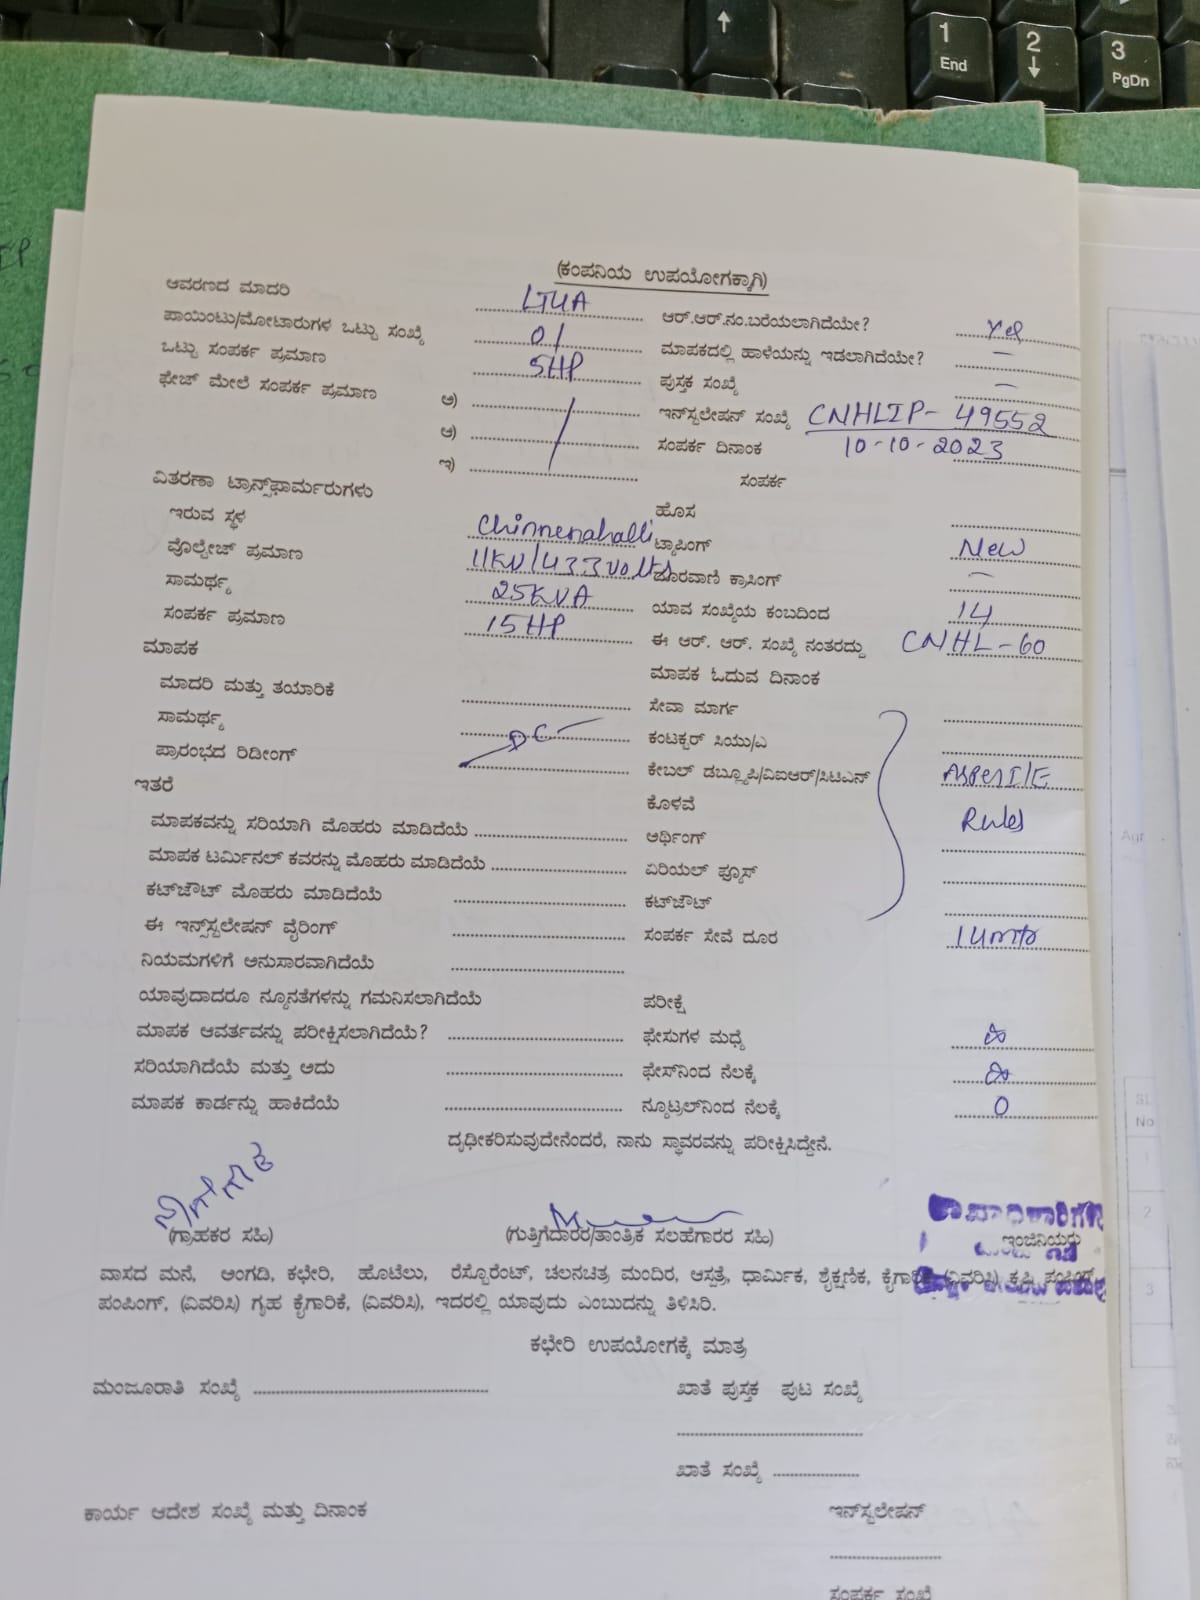 1
End
2
↓
3
PgDn
↑
(ಕಂಪನಿಯ ಉಪಯೋಗಕ್ಕಾಗಿ)
ಆವರಣದ ಮಾದರಿ LT4A ಆರ್.ಆರ್.ನಂ.ಬರೆಯಲಾಗಿದೆಯೇ? Yes
ಪಾಯಿಂಟು/ಮೋಟಾರುಗಳ ಒಟ್ಟು ಸಂಖ್ಯೆ 01 ಮಾಪಕದಲ್ಲಿ ಹಾಳೆಯನ್ನು ಇಡಲಾಗಿದೆಯೇ? –
ಒಟ್ಟು ಸಂಪರ್ಕ ಪ್ರಮಾಣ 5HP ಪುಸ್ತಕ ಸಂಖ್ಯೆ –
ಫೇಜ್ ಮೇಲೆ ಸಂಪರ್ಕ ಪ್ರಮಾಣ ಅ) ಇನ್‌ಸ್ಟಲೇಷನ್ ಸಂಖ್ಯೆ CNHLIP-49552
ಆ) ಸಂಪರ್ಕ ದಿನಾಂಕ 10-10-2023
ಇ) ಸಂಪರ್ಕ
ವಿತರಣಾ ಟ್ರಾನ್ಸ್‌ಫಾರ್ಮರುಗಳು
ಇರುವ ಸ್ಥಳ Chinnenahalli ಹೊಸ
ವೊಲ್ಟೇಜ್ ಪ್ರಮಾಣ 11KV/433volts ಟ್ಯಾಪಿಂಗ್ New
ಸಾಮರ್ಥ್ಯ 25KVA ದೂರವಾಣಿ ಕ್ರಾಸಿಂಗ್ –
ಸಂಪರ್ಕ ಪ್ರಮಾಣ 15HP ಯಾವ ಸಂಖ್ಯೆಯ ಕಂಬದಿಂದ 14
ಮಾಪಕ ಈ ಆರ್. ಆರ್. ಸಂಖ್ಯೆ ನಂತರದ್ದು CNHL-60
ಮಾಪಕ ಓದುವ ದಿನಾಂಕ
ಮಾದರಿ ಮತ್ತು ತಯಾರಿಕೆ ಸೇವಾ ಮಾರ್ಗ
ಸಾಮರ್ಥ್ಯ DC ಕಂಟಕ್ಟರ್ ಸಿಯು/ಎ
ಪ್ರಾರಂಭದ ರಿಡೀಂಗ್ ಕೇಬಲ್ ಡಬ್ಲ್ಯೂಪಿ/ವಿಐಆರ್/ಸಿಟಿಎನ್ Asper I/E
ಇತರೆ ಕೊಳವೆ Rules
ಮಾಪಕವನ್ನು ಸರಿಯಾಗಿ ಮೊಹರು ಮಾಡಿದೆಯೆ ಆರ್ಥಿಂಗ್
ಮಾಪಕ ಟರ್ಮಿನಲ್ ಕವರನ್ನು ಮೊಹರು ಮಾಡಿದೆಯೆ ಏರಿಯಲ್ ಫ್ಯೂಸ್
ಕಟ್‌ಔಟ್ ಮೊಹರು ಮಾಡಿದೆಯೆ ಕಟ್‌ಔಟ್
ಈ ಇನ್ಸ್‌ಸ್ಟಲೇಷನ್ ವೈರಿಂಗ್ ಸಂಪರ್ಕ ಸೇವೆ ದೂರ 14mts
ನಿಯಮಗಳಿಗೆ ಅನುಸಾರವಾಗಿದೆಯೆ
ಯಾವುದಾದರೂ ನ್ಯೂನತೆಗಳನ್ನು ಗಮನಿಸಲಾಗಿದೆಯೆ ಪರೀಕ್ಷೆ
ಮಾಪಕ ಆವರ್ತವನ್ನು ಪರೀಕ್ಷಿಸಲಾಗಿದೆಯೆ? ಫೇಸುಗಳ ಮಧ್ಯೆ ∞
ಸರಿಯಾಗಿದೆಯೆ ಮತ್ತು ಅದು ಫೇಸ್‌ನಿಂದ ನೆಲಕ್ಕೆ ∞
ಮಾಪಕ ಕಾರ್ಡನ್ನು ಹಾಕಿದೆಯೆ ನ್ಯೂಟ್ರಲ್‌ನಿಂದ ನೆಲಕ್ಕೆ 0
ದೃಢೀಕರಿಸುವುದೇನೆಂದರೆ, ನಾನು ಸ್ಥಾವರವನ್ನು ಪರೀಕ್ಷಿಸಿದ್ದೇನೆ.
(ಗ್ರಾಹಕರ ಸಹಿ) (ಗುತ್ತಿಗೆದಾರರ/ತಾಂತ್ರಿಕ ಸಲಹೆಗಾರರ ಸಹಿ) ಇಂಜಿನಿಯರು
ವಾಸದ ಮನೆ, ಅಂಗಡಿ, ಕಛೇರಿ, ಹೊಟೆಲು, ರೆಸ್ಟೊರೆಂಟ್, ಚಲನಚಿತ್ರ ಮಂದಿರ, ಆಸ್ಪತ್ರೆ, ಧಾರ್ಮಿಕ, ಶೈಕ್ಷಣಿಕ, ಕೈಗಾರಿಕೆ, (ವಿವರಿಸಿ) ಕೃಷಿ ಪಂಪಿಂಗ್,
ಪಂಪಿಂಗ್, (ವಿವರಿಸಿ) ಗೃಹ ಕೈಗಾರಿಕೆ, (ವಿವರಿಸಿ), ಇದರಲ್ಲಿ ಯಾವುದು ಎಂಬುದನ್ನು ತಿಳಿಸಿರಿ.
ಕಛೇರಿ ಉಪಯೋಗಕ್ಕೆ ಮಾತ್ರ
ಮಂಜೂರಾತಿ ಸಂಖ್ಯೆ ಖಾತೆ ಪುಸ್ತಕ ಪುಟ ಸಂಖ್ಯೆ
ಖಾತೆ ಸಂಖ್ಯೆ
ಕಾರ್ಯ ಆದೇಶ ಸಂಖ್ಯೆ ಮತ್ತು ದಿನಾಂಕ ಇನ್‌ಸ್ಟಲೇಷನ್
ಸಂಪರ್ಕ ಸಂಖ್ಯೆ
SL
No
1
2
3